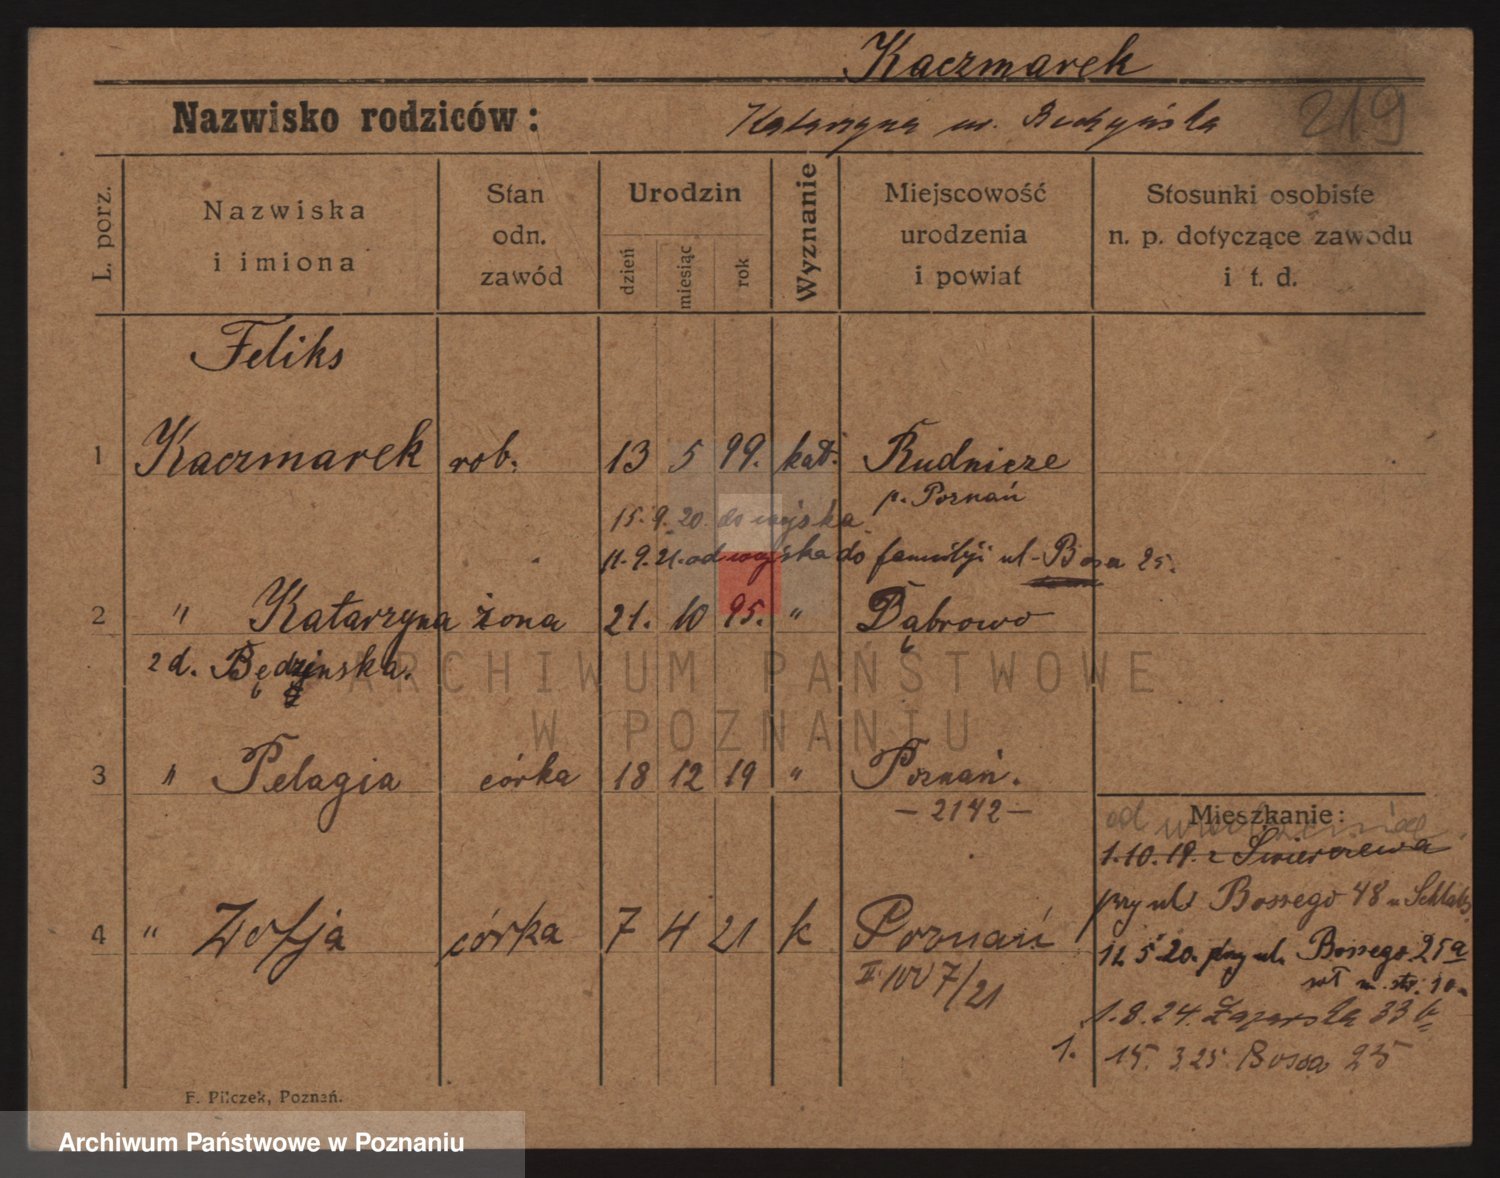 Kaczmarek
Nazwisko rodziców:
Katarzyna ur.
219
L. porz.
Nazwiska
i imiona
Stan
odn.
zawód
Urodzin
dzień
miesiąc
rok
Wyznanie
Miejscowość
urodzenia
i powiat
Stosunki osobiste
n. p. dotyczące zawodu
i t. d.
Feliks
1 Kaczmarek rob. 13 5 99. kat. Rudnicze
p. Poznań
15. 9. 20. do wojska
11. 9. 21. od wojska do familji ul. Bosa 25.
2 " Katarzyna żona 21. 10 95. " Dąbrowo
2 d. Będzinska.
ARCHIWUM PAŃSTWOWE
W POZNANIU
3 " Pelagia córka 18 12 19 " Poznań.
— 2142 —
Mieszkanie:
od
1. 10. 19. z Swierczewa
przy ul. Bossego 48 u
4 " Zofja córka 7 4 21 k Poznań
12 5 20. przy ul. Bossego 25a
II 100 7/21
m. str. 10
1. 8. 24. 33 b
1. 15. 3 25. Bossa 25
F. Pilczek, Poznań.
Archiwum Państwowe w Poznaniu